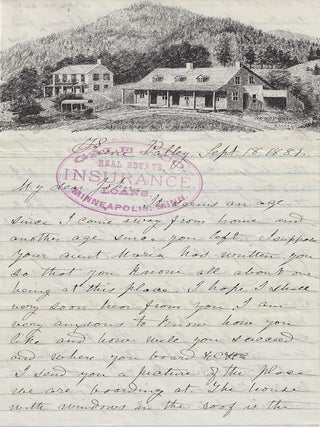 Sept. 18, 1881.
REAL ESTATE,
INSURANCE
LOANS,
MINNEAPOLIS, MINN.
My dear
It seems an age
since I came away from home and
another age since you left. I suppose
your aunt Maria has written you
so that you know all about our
being at this place. I hope I shall
very soon hear from you. I am
very anxious to know how you
like and how well you succeed
and where you board &c &c
I send you a picture of the place
we are boarding at. The house
with windows in the roof is the